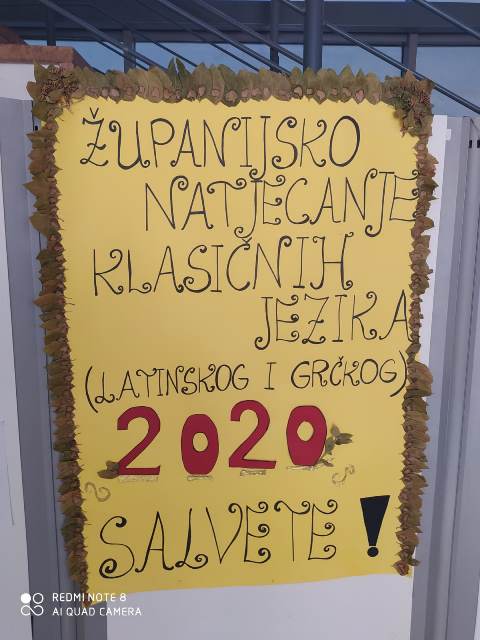 ŽUPANIJSKO
NATJECANJE
KLASIČNIH
JEZIKA
(LATINSKOG I GRČKOG)
2020
SALVETE!
REDMI NOTE 8
AI QUAD CAMERA